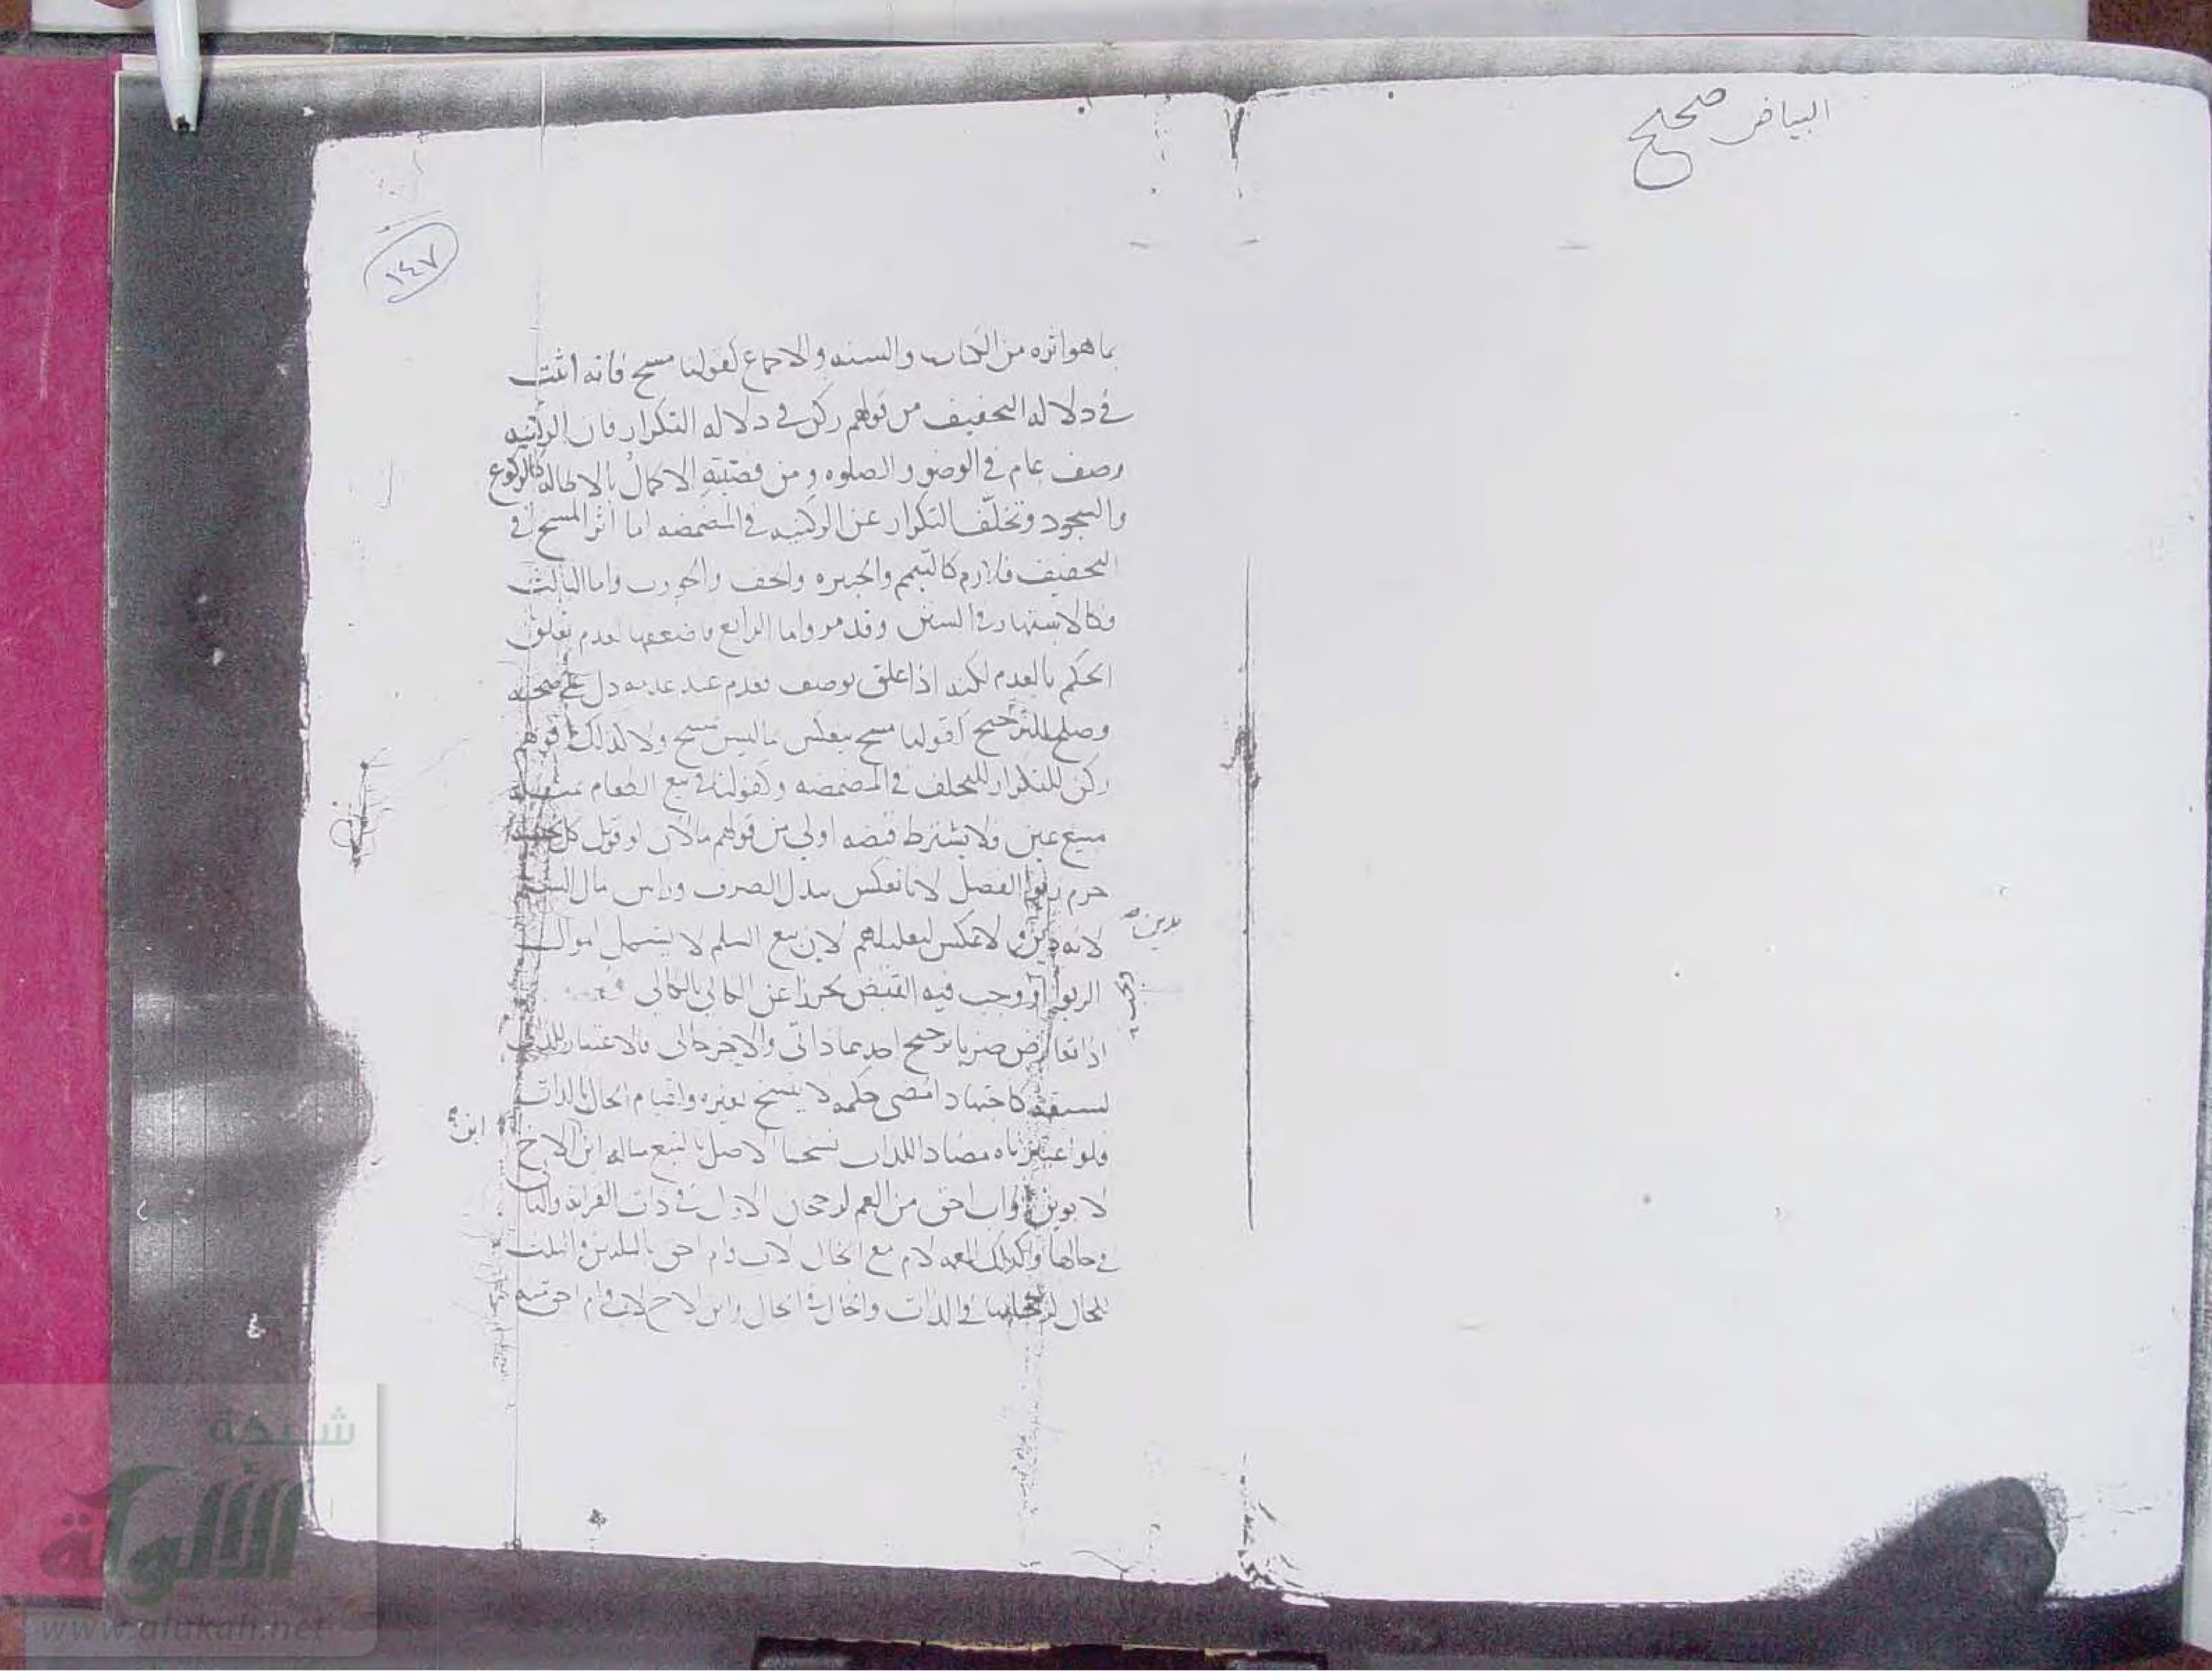 البياض صحيح
١٤٧
بما هو اثره من الكتاب والسنه والاجماع كقولنا مسح فانه اثبت
في دلاله التخفيف من قولهم ركن في دلاله التكرار فان الركنيه
وصف عام في الوضو والصلوه ومن قضيته الاكمال بالاطاله كالركوع
والسجود وتخلف التكرار عن الركنيه في المضمضه اما اثر المسح في
التخفيف فلازم كالتيمم والجبيره والخف والجورب واما الثالث
فكالاشتهار في السنن وقد مر واما الرابع فاضعفها لعدم تعلق
الحكم بالعدم لكنه اذا علق بوصف فعدم عند عدمه دل على صحته
وصلح للترجيح كقولنا مسح ينعكس بما ليس بمسح ولا كذلك قولهم
ركن للتكرار للتخلف في المضمضه وكقولنا في بيع الطعام
مبيع عين فلا يشترط قبضه اولى من قولهم مالان لو قوبل كل
حرم ربوا الفضل لانا نعكس ببدل الصرف وراس مال السلم
بدين
لانه دين ولا عكس لتعليلهم لان بيع السلم لا يشمل اموال
الربوا ووجب فيه القبض تحرزا عن الكالي بالكالي
وجب
اذا تعارض ضربا ترجيح احدهما ذاتي والاخر حالي فالاعتبار للذاتي
لسبقه كاجتهاد امضى حكمه لا ينسخ بغيره ولقيام الحال بالذات
فلو اعتبرناه مضادا للذات نسخنا الاصل بالتبع مثاله ابن الاخ
ابن
لابوين او اب احق من العم لرجحان الاول في ذات القرابه والثاني
في حالها وكذلك العمه لام مع الخال لاب وام احق بالثلثين والثلث
للخال لرجحانها في الذات والخال في الحال وابن الاخ لاب وام احق منه
شبكة
الألوكة
www.alukah.net